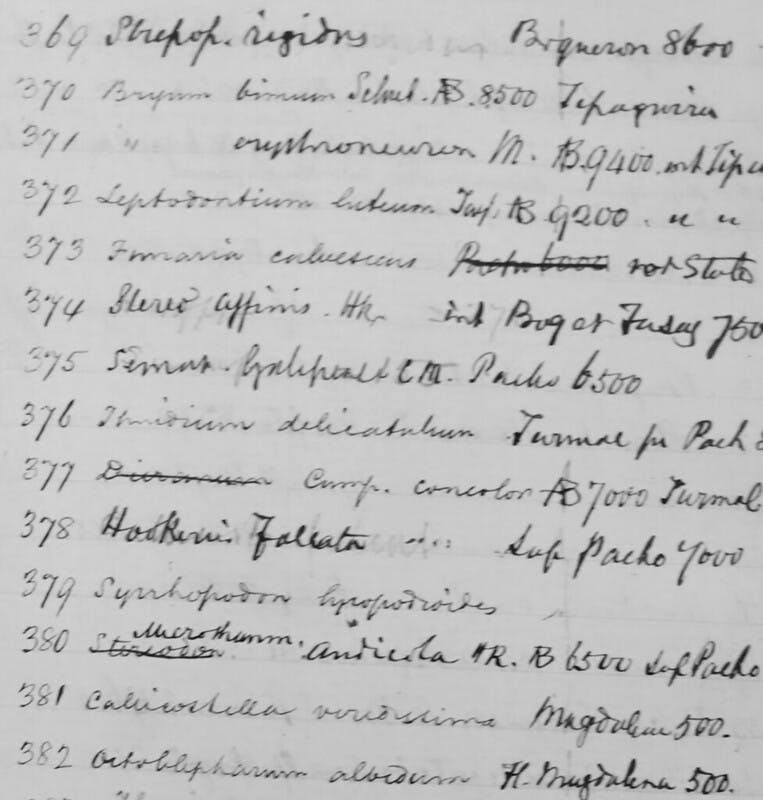 369 Strepop. rigidus Boqueron 8600
370 Bryum bimum Schreb. AB. 8,500 Tipaquira
371 " erythroneuron M. AB. 9400. int Tip
372 Leptodontium luteum Tayl. AB 9200 . " "
373 Funaria calvescens Pacho 6000
374 Stereo affinis. Hk. int Bog et Fusag 750
375 Semat. C M. Pacho 6500
376 Thuidium delicatulum Turmal pr Pach
377 Dicranum Camp. concolor AB 7000 Turmal
378 Hookeria Falcata .... sup Pacho 7000
379 Syrrhopodon lycopodioides "
380 Stereodon Microthamn. andicola HR. AB 6500 sup Pacho
381 Callicostella viridissima Magdalena 500.
382 Octoblepharum albidum H. Magdalena 500.